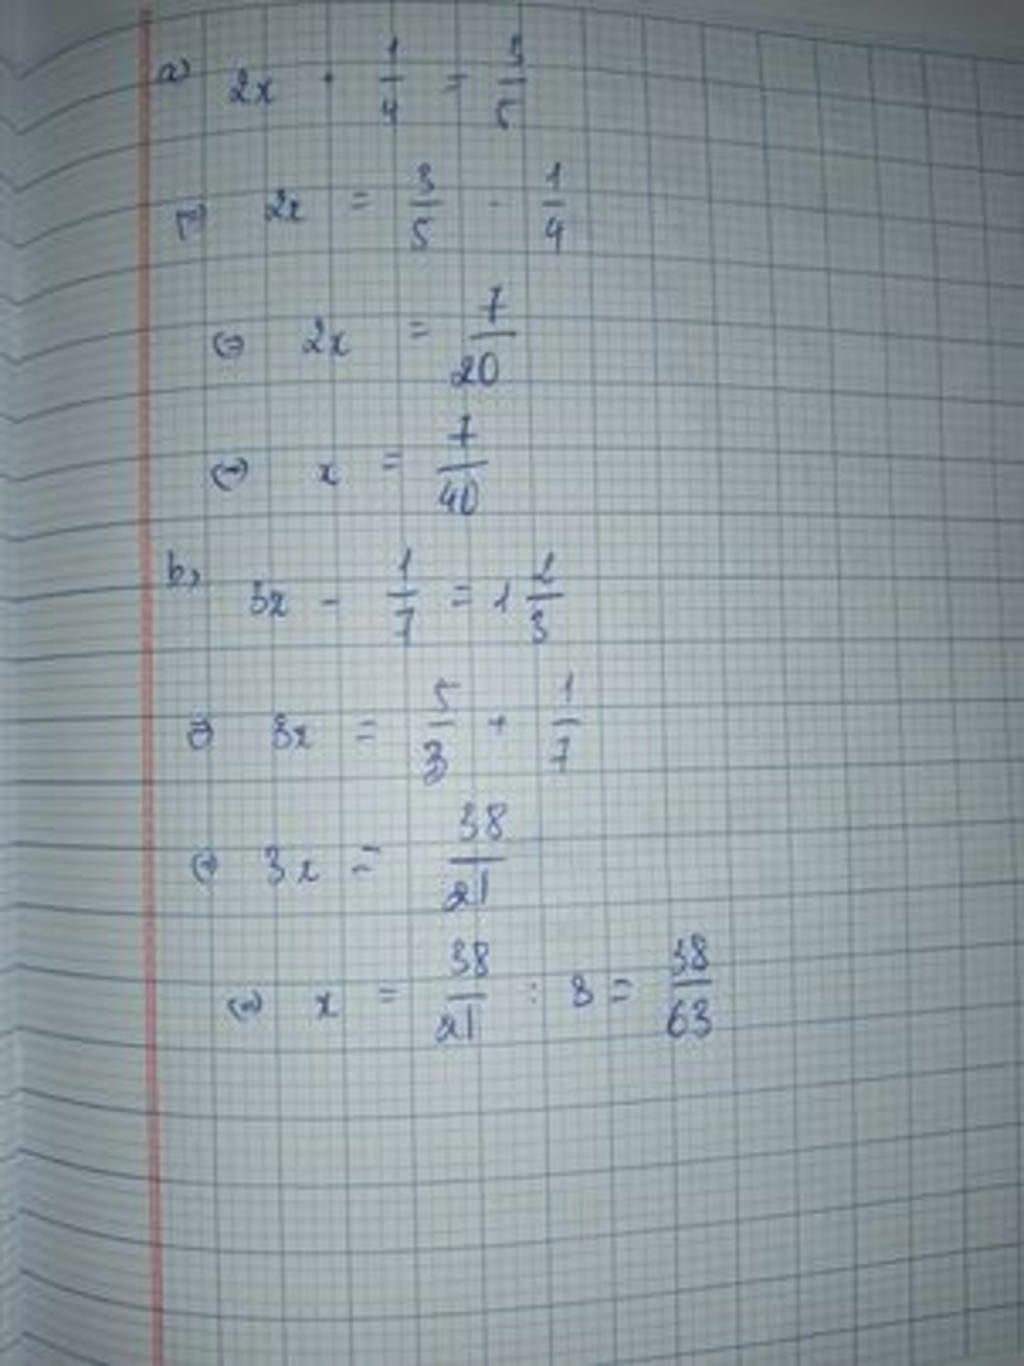 a) 2x + 1/4 = 3/5
⇔ 2x = 3/5 - 1/4
⇔ 2x = 7/20
⇔ x = 7/40
b) 3x - 1/7 = 1 2/3
⇔ 3x = 5/3 + 1/7
⇔ 3x = 38/21
⇔ x = 38/21 : 3 = 38/63